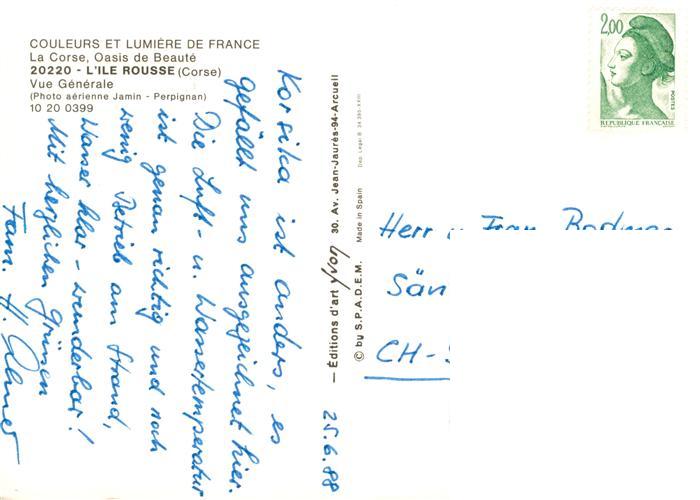 COULEURS ET LUMIÈRE DE FRANCE
La Corse, Oasis de Beauté
20220 - L'ILE ROUSSE (Corse)
Vue Générale
(Photo aérienne Jamin - Perpignan)
10 20 0399
Korsika ist anders, es
gefällt uns ausgezeichnet hier.
Die Luft- u. Wassertemperatur
ist genau richtig und noch
wenig Betrieb am Strand,
Wasser klar - wunderbar!
Mit herzlichen Grüssen
Fam. H.
25.6.88
— Éditions d'art yvon 30. Av. Jean-Jaurès-94-Arcueil
© by S.P.A.D.E.M. Made in Spain Dep. Legal B
2,00
POSTES
REPUBLIQUE FRANÇAISE
Herr u. Frau
Sän
CH-